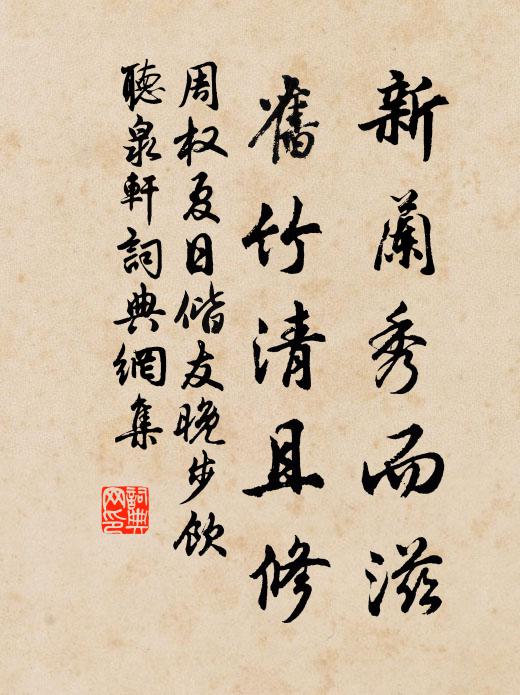 新蘭秀而滋
舊竹清且修
周权夏日偕友晚步飲
聽泉軒詞典網集
詞典网印